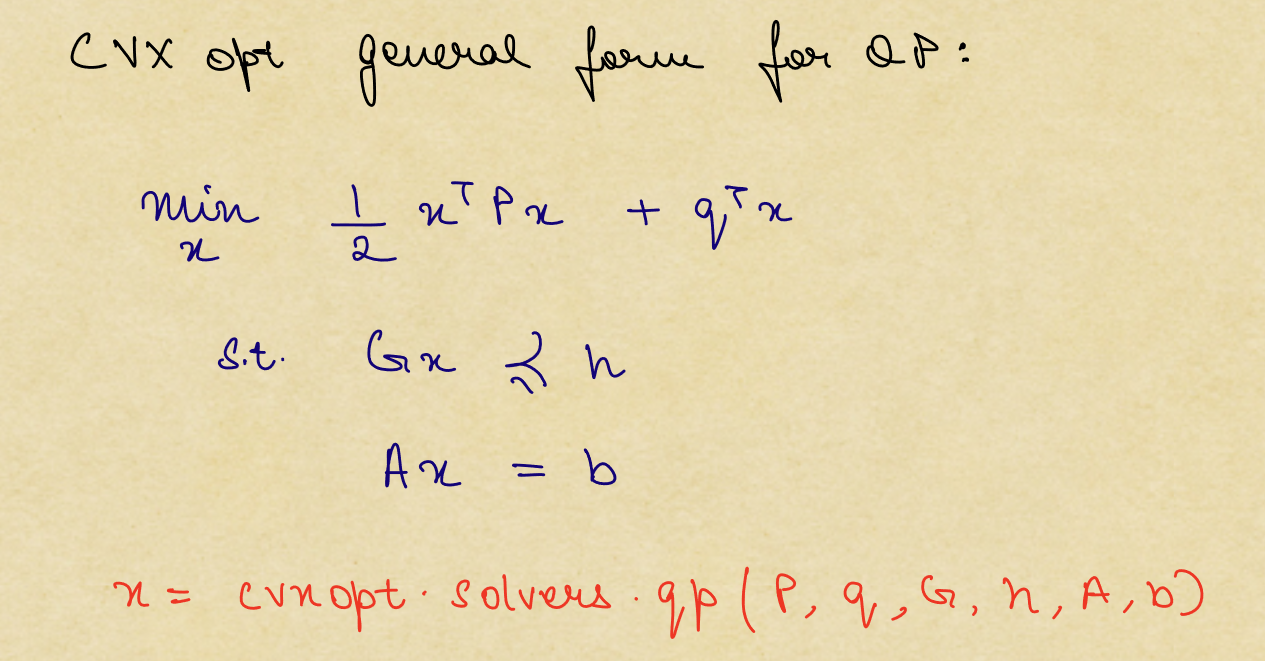 CVX opt general form for QP:
min 1/2 x^T P x + q^T x
x
s.t. Gx ⪯ h
Ax = b
x = cvxopt.solvers.qp(P, q, G, h, A, b)